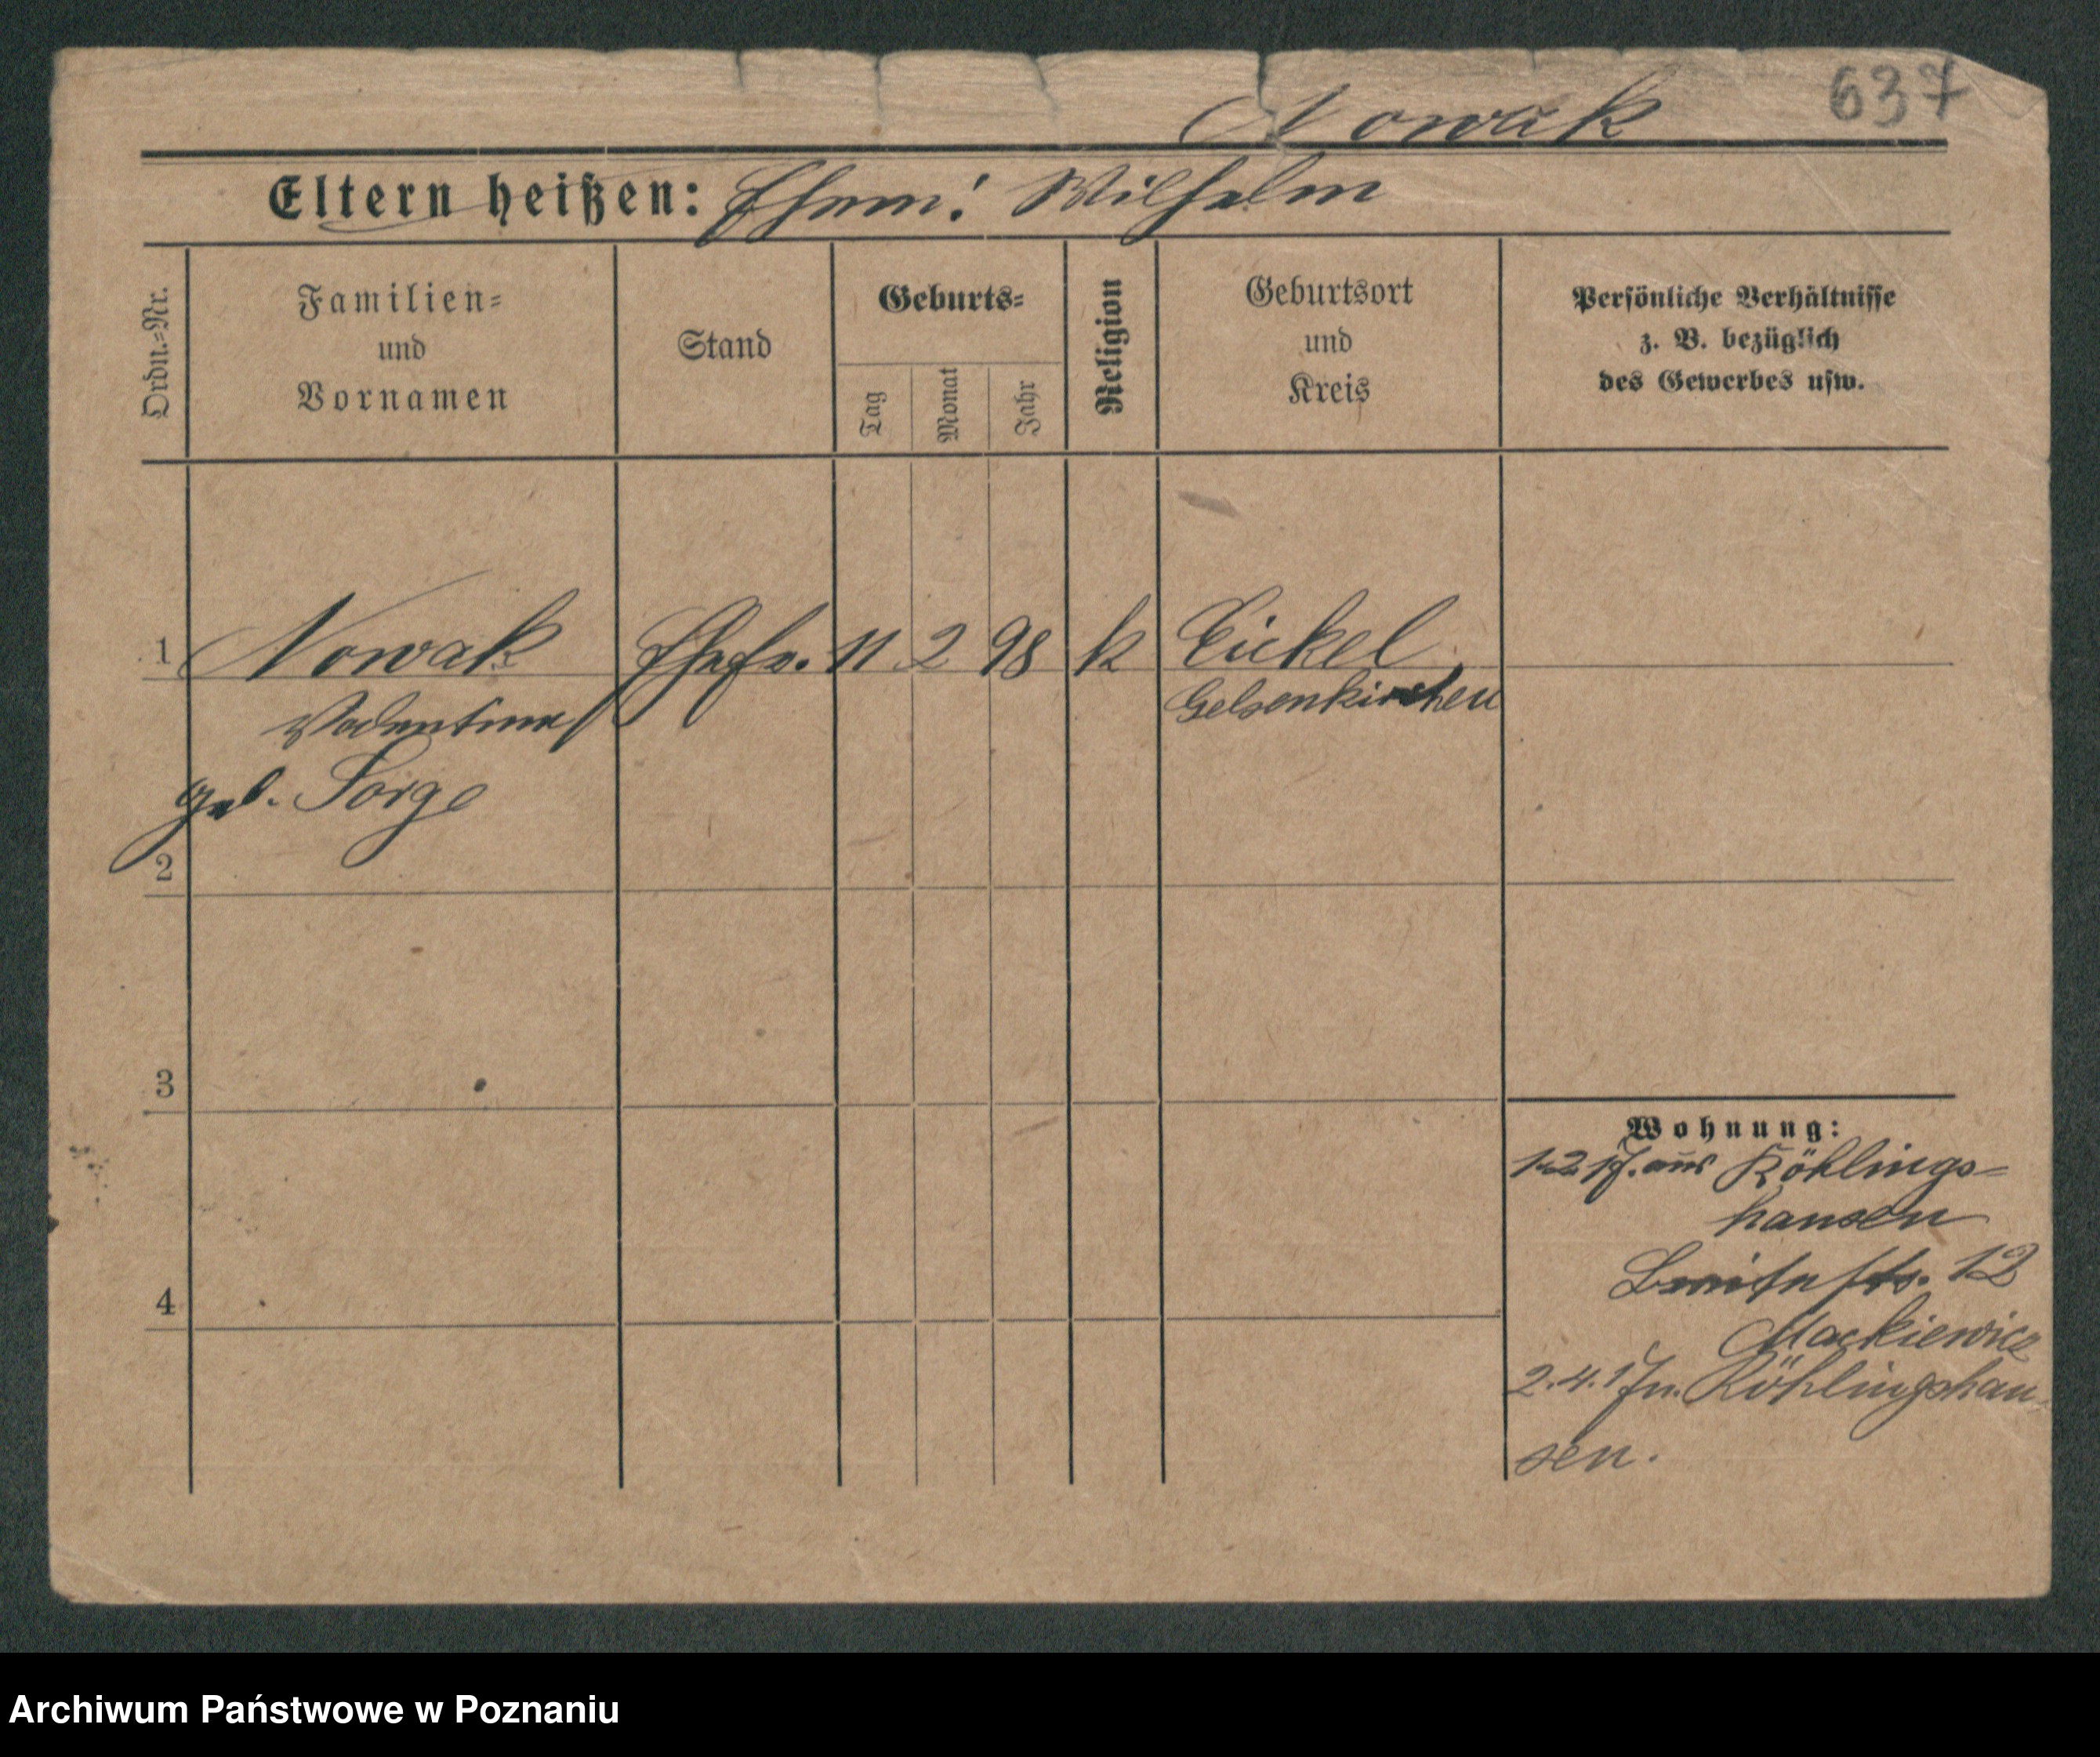 637
Nowak
Eltern heißen: Ehem: Wilhelm
Ordn.=Nr.
Familien=
und
Vornamen
Stand
Geburts=
Tag
Monat
Jahr
Religion
Geburtsort
und
Kreis
Persönliche Verhältnisse
z. B. bezüglich
des Gewerbes usw.
1 Nowak Ehefr. 11 2 98 k Eickel
Gelsenkirchen
geb. Sorge
2
3
4
Wohnung:
aus Röhlings=
hausen
Breitestr. 12
Mackiewicz
2.4.17 n. Röhlingshau
sen.
Archiwum Państwowe w Poznaniu